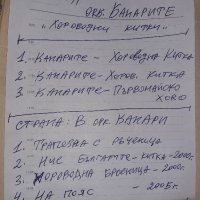 орк. Канарите
"Хороводни китки"
1. Канарите - Хороводна Китка
2. Канарите - Хоров. китка
3. Канарите - Първомайско
хоро
Страна: В орк. Канари
1. Трапезна с ръченица
2. Ние българите - китка - 2000г.
3. Хороводна броеница - 2000г.
4. На пояс - 2005г.